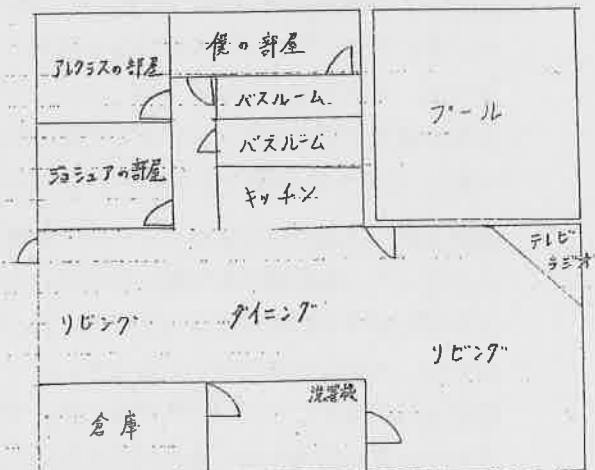 僕の部屋
アレクラスの部屋
バスルーム
プール
バスルーム
ジョシュアの部屋
キッチン
テレビ
ラジオ
リビング
ダイニング
リビング
洗濯機
倉庫